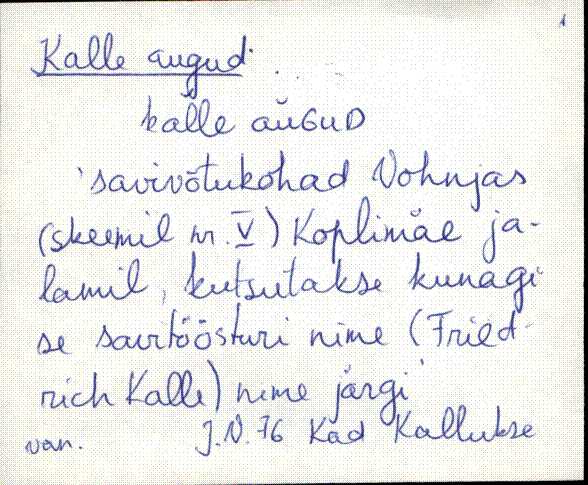 Kalle augud
kalle aǔGuD
'savivõtukohad Vohnjas
(skeemil nr. V) Koplimäe ja-
lamil, kutsutakse kunagi-
se savitöösturi nime (Fried-
rich Kalle) nime järgi'
van. J.V. 76 Kad Kallukse